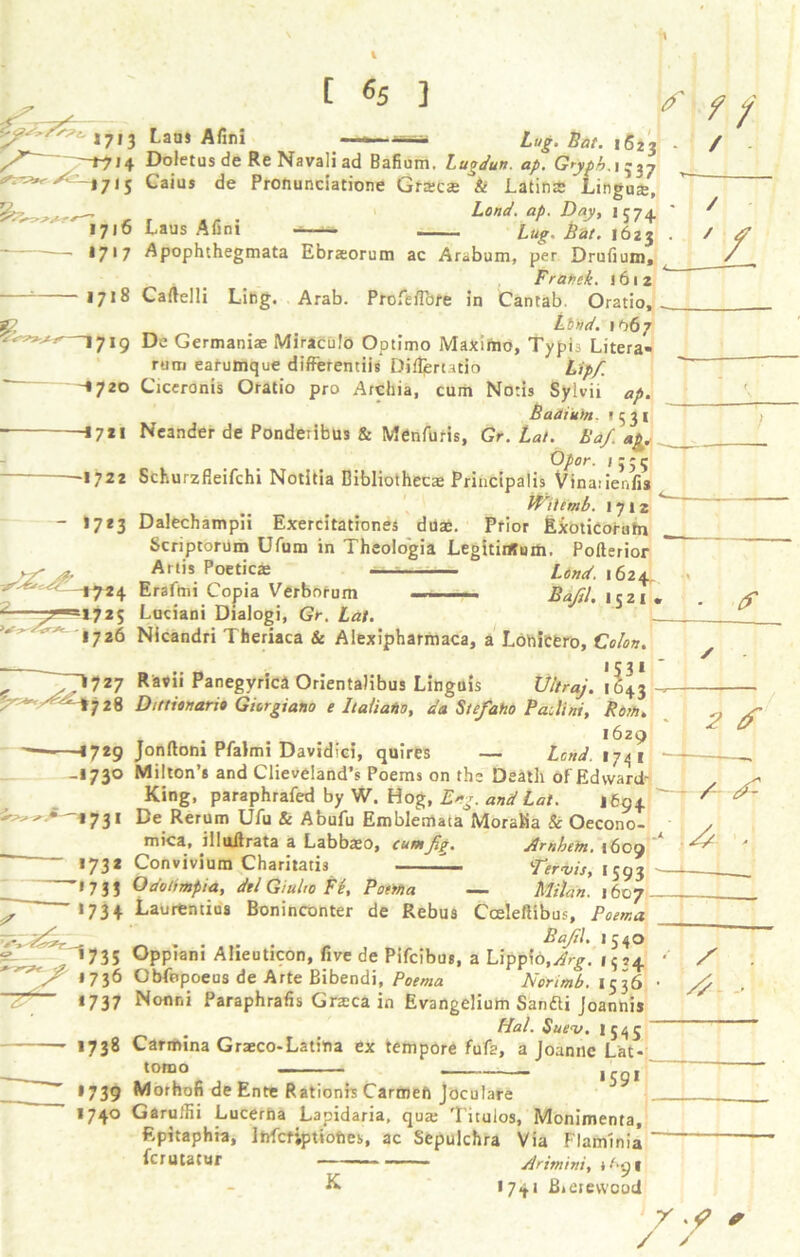 [ 65 ]
1713 Laus Aſini —— Lug. Bat. 1623
1714 Doletus de Re Navali ad Baſium. Lugdun. ap. Gryph. 1537
1715 Caius de Pronunciatione Græcæ & Latinæ Linguæ,
Lond. ap. Day, 1574
1716 Laus Aſini —— —— Lug. Bat. 1623
1717 Apophthegmata Ebræorum ac Arabum, per Druſium,
Franek. 1612
1718 Caſtelli Ling. Arab. Profeſſore in Cantab. Oratio,
Lond. 1667
1719 De Germaniæ Miraculo Optimo Maximo, Typis Litera-
rum earumque differentiis Diſſertatio Lipſ.
1720 Ciceronis Oratio pro Archia, cum Notis Sylvii ap.
Badium. 1531
1721 Neander de Ponderibus & Menſuris, Gr. Lat. Baſ. ap.
Opor. 1555
1722 Schurzfleiſchi Notitia Bibliothecæ Principalis Vinarienſis
Wittemb. 1712
1723 Dalechampii Exercitationes duæ. Prior Exoticorum
Scriptorum Uſum in Theologia Legitimum. Poſterior
Artis Poeticæ —— Lond. 1624
1724 Eraſmi Copia Verborum —— Baſil. 1521
1725 Luciani Dialogi, Gr. Lat.
1726 Nicandri Theriaca & Alexipharmaca, a Lonicero, Colon.
1531
1727 Ravii Panegyrica Orientalibus Linguis Ultraj. 1643
1728 Dittionario Giorgiano e Italiano, da Stefano Paolini, Rom.
1629
1729 Jonſtoni Pſalmi Davidici, quires — Lond. 1741
1730 Milton's and Clieveland's Poems on the Death of Edward
King, paraphraſed by W. Hog, Eng. and Lat. 1694
1731 De Rerum Uſu & Abuſu Emblemata Moralia & Oecono-
mica, illuſtrata a Labbæo, cum fig. Arnhem. 1609
1732 Convivium Charitatis —— Tervis, 1593
1733 Odolimpia, del Giulio Fé, Poema — Milan. 1607
1734 Laurentius Boninconter de Rebus Cœleſtibus, Poema
Baſil. 1540
1735 Oppiani Alieuticon, five de Piſcibus, a Lippio, Arg. 1534
1736 Obſopoeus de Arte Bibendi, Poema Norimb. 1536
1737 Nonni Paraphraſis Græca in Evangelium Sancti Joannis
Hal. Suev. 1545
1738 Carmina Græco-Latina ex tempore fuſa, a Joanne Lat-
tomo —— —— 1591
1739 Morhofi de Ente Rationis Carmen Joculare
1740 Garuffii Lucerna Lapidaria, quæ Titulos, Monimenta,
Epitaphia, Inſcriptiones, ac Sepulchra Via Flaminia
ſcrutatur —— Arimini, 1691
K 1741 Bierewood